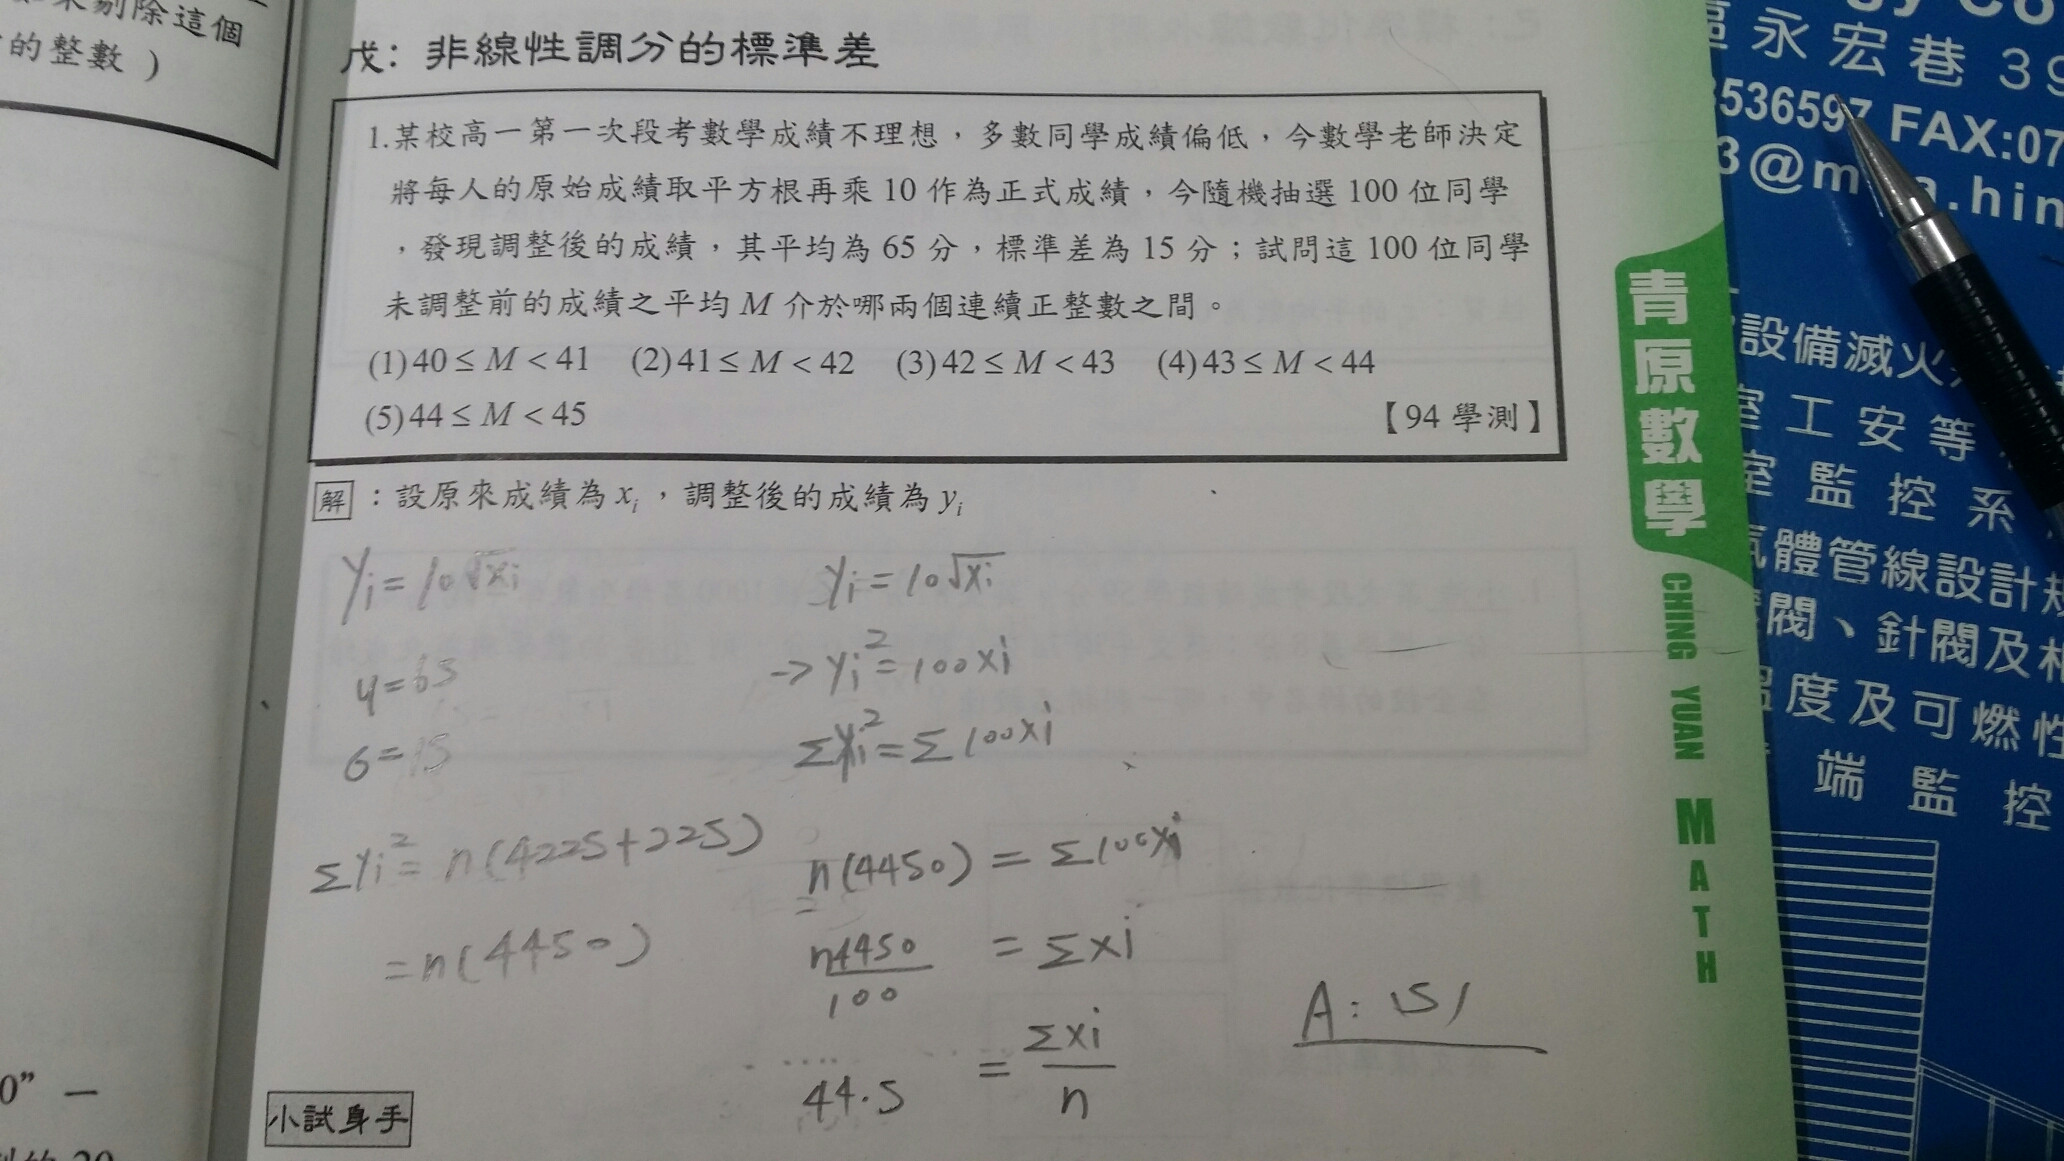 剔除這個
的整數）
戊：非線性調分的標準差
1.某校高一第一次段考數學成績不理想，多數同學成績偏低，今數學老師決定
將每人的原始成績取平方根再乘 10 作為正式成績，今隨機抽選 100 位同學
，發現調整後的成績，其平均為 65 分，標準差為 15 分；試問這 100 位同學
未調整前的成績之平均 M 介於哪兩個連續正整數之間。
(1) 40 ≤ M < 41 (2) 41 ≤ M < 42 (3) 42 ≤ M < 43 (4) 43 ≤ M < 44
(5) 44 ≤ M < 45 【94 學測】
解：設原來成績為 xᵢ，調整後的成績為 yᵢ
yi = 10√xi
y = 65
σ = 15
Σyi² = n(4225+225)
= n(4450)
yi = 10√xi
→ yi² = 100xi
Σyi² = Σ100xi
n(4450) = Σ100xi
n4450/100 = Σxi
44.5 = Σxi/n
A: (5)
小試身手
青原數學
CHING YUAN MATH
永宏巷 39
536597 FAX:07
設備滅火
室工安等
室監控系
氣體管線設計規
閥、針閥及
溫度及可燃性
端監控